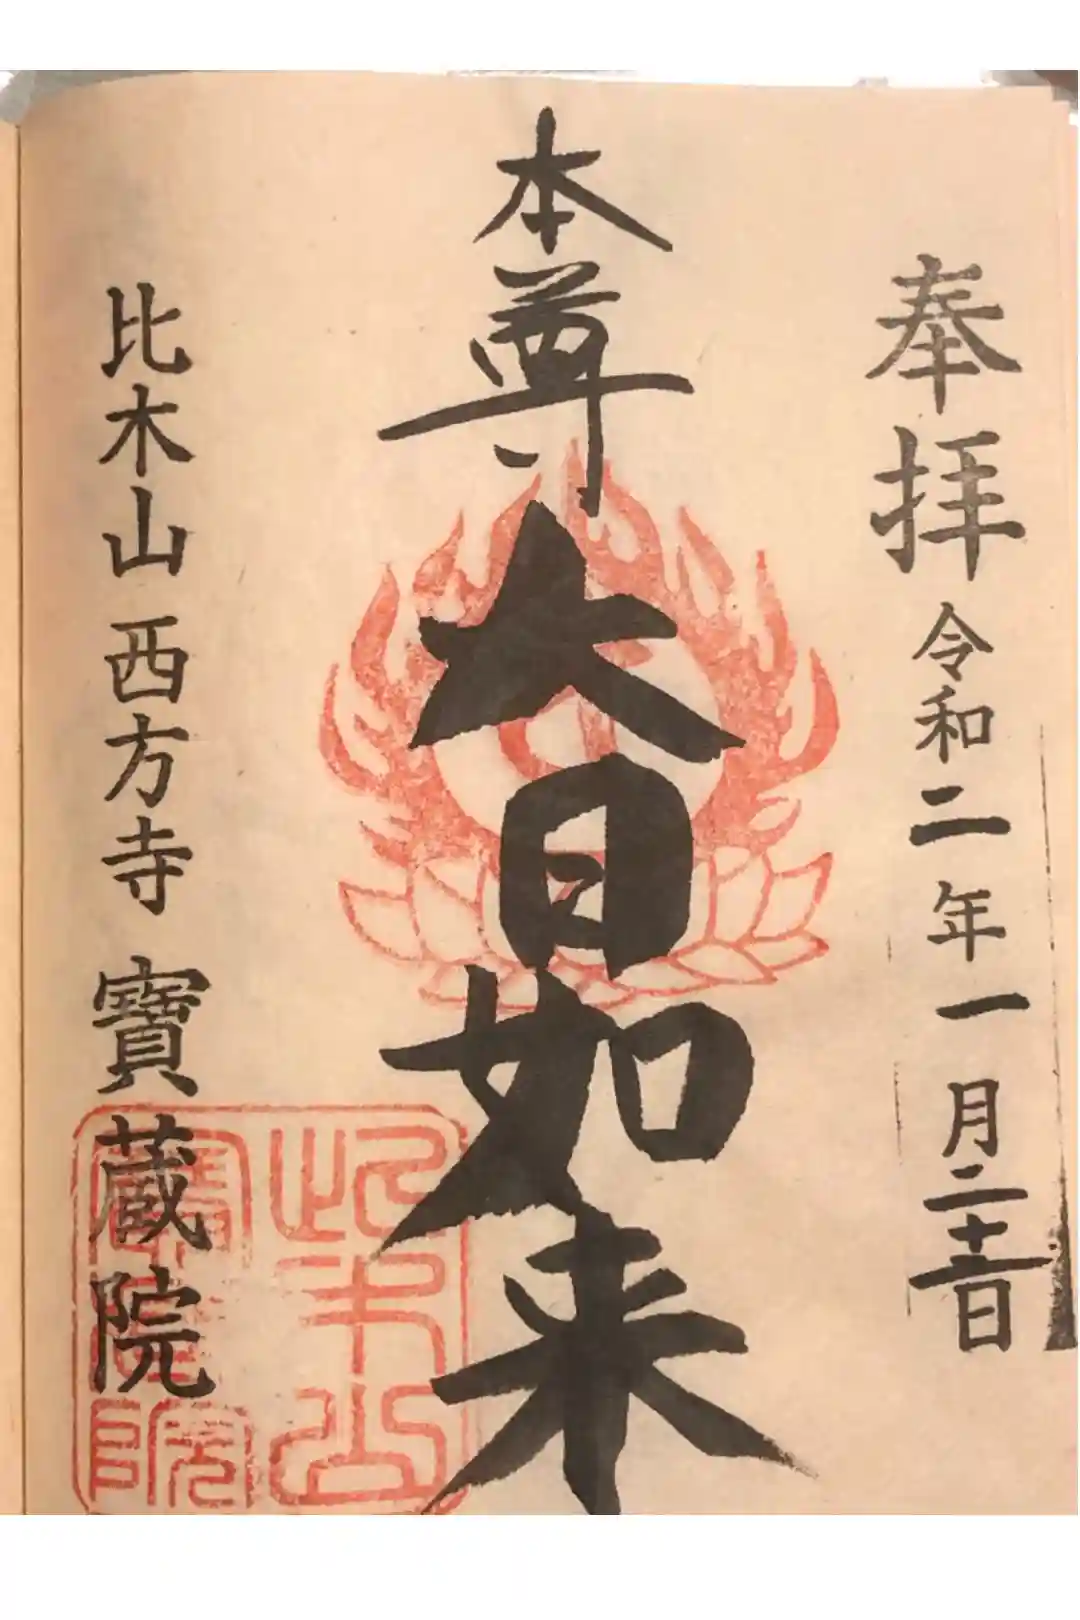 奉拝 令和二年一月二十一日
本尊 大日如来
比木山 西方寺 寶蔵院
比木山